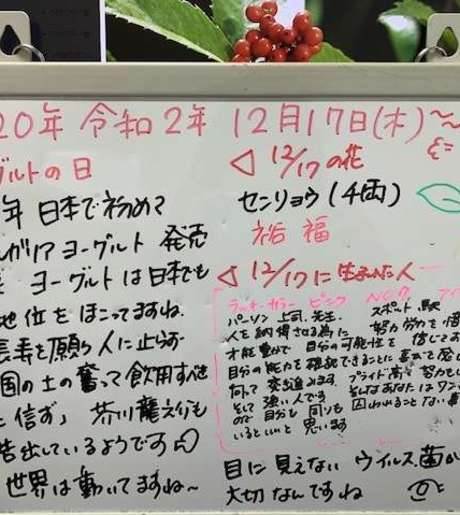 20年 令和2年 12月17日(木)〜
グルトの日
年 日本で初めて
ガリア ヨーグルト 発売
ヨーグルトは日本でも
地位をほこってますね.
長寿を願う人に止らず
国の土の奮って飲用すべき
と信ず」 芥川龍之介も
告出しているようです
世界は動いてますね~
◁ 12/17の花
センリョウ (千両)
裕福
◁ 12/17に生まれた人
ラッキーカラー ピンク NO.7
パーソン 上司. 先生. スポット 駅
人を納得させる為に 努力
才能豊かで 自分の可能性を 信じて
自分の能力を確認できることに喜びを
向って 突き進みます. プライド高く 努力
そして 強い人です あなたは
ので自分も 周りも 囚われることない
いるといいと 思います
目に見えない ウイルス.菌
大切なんですね